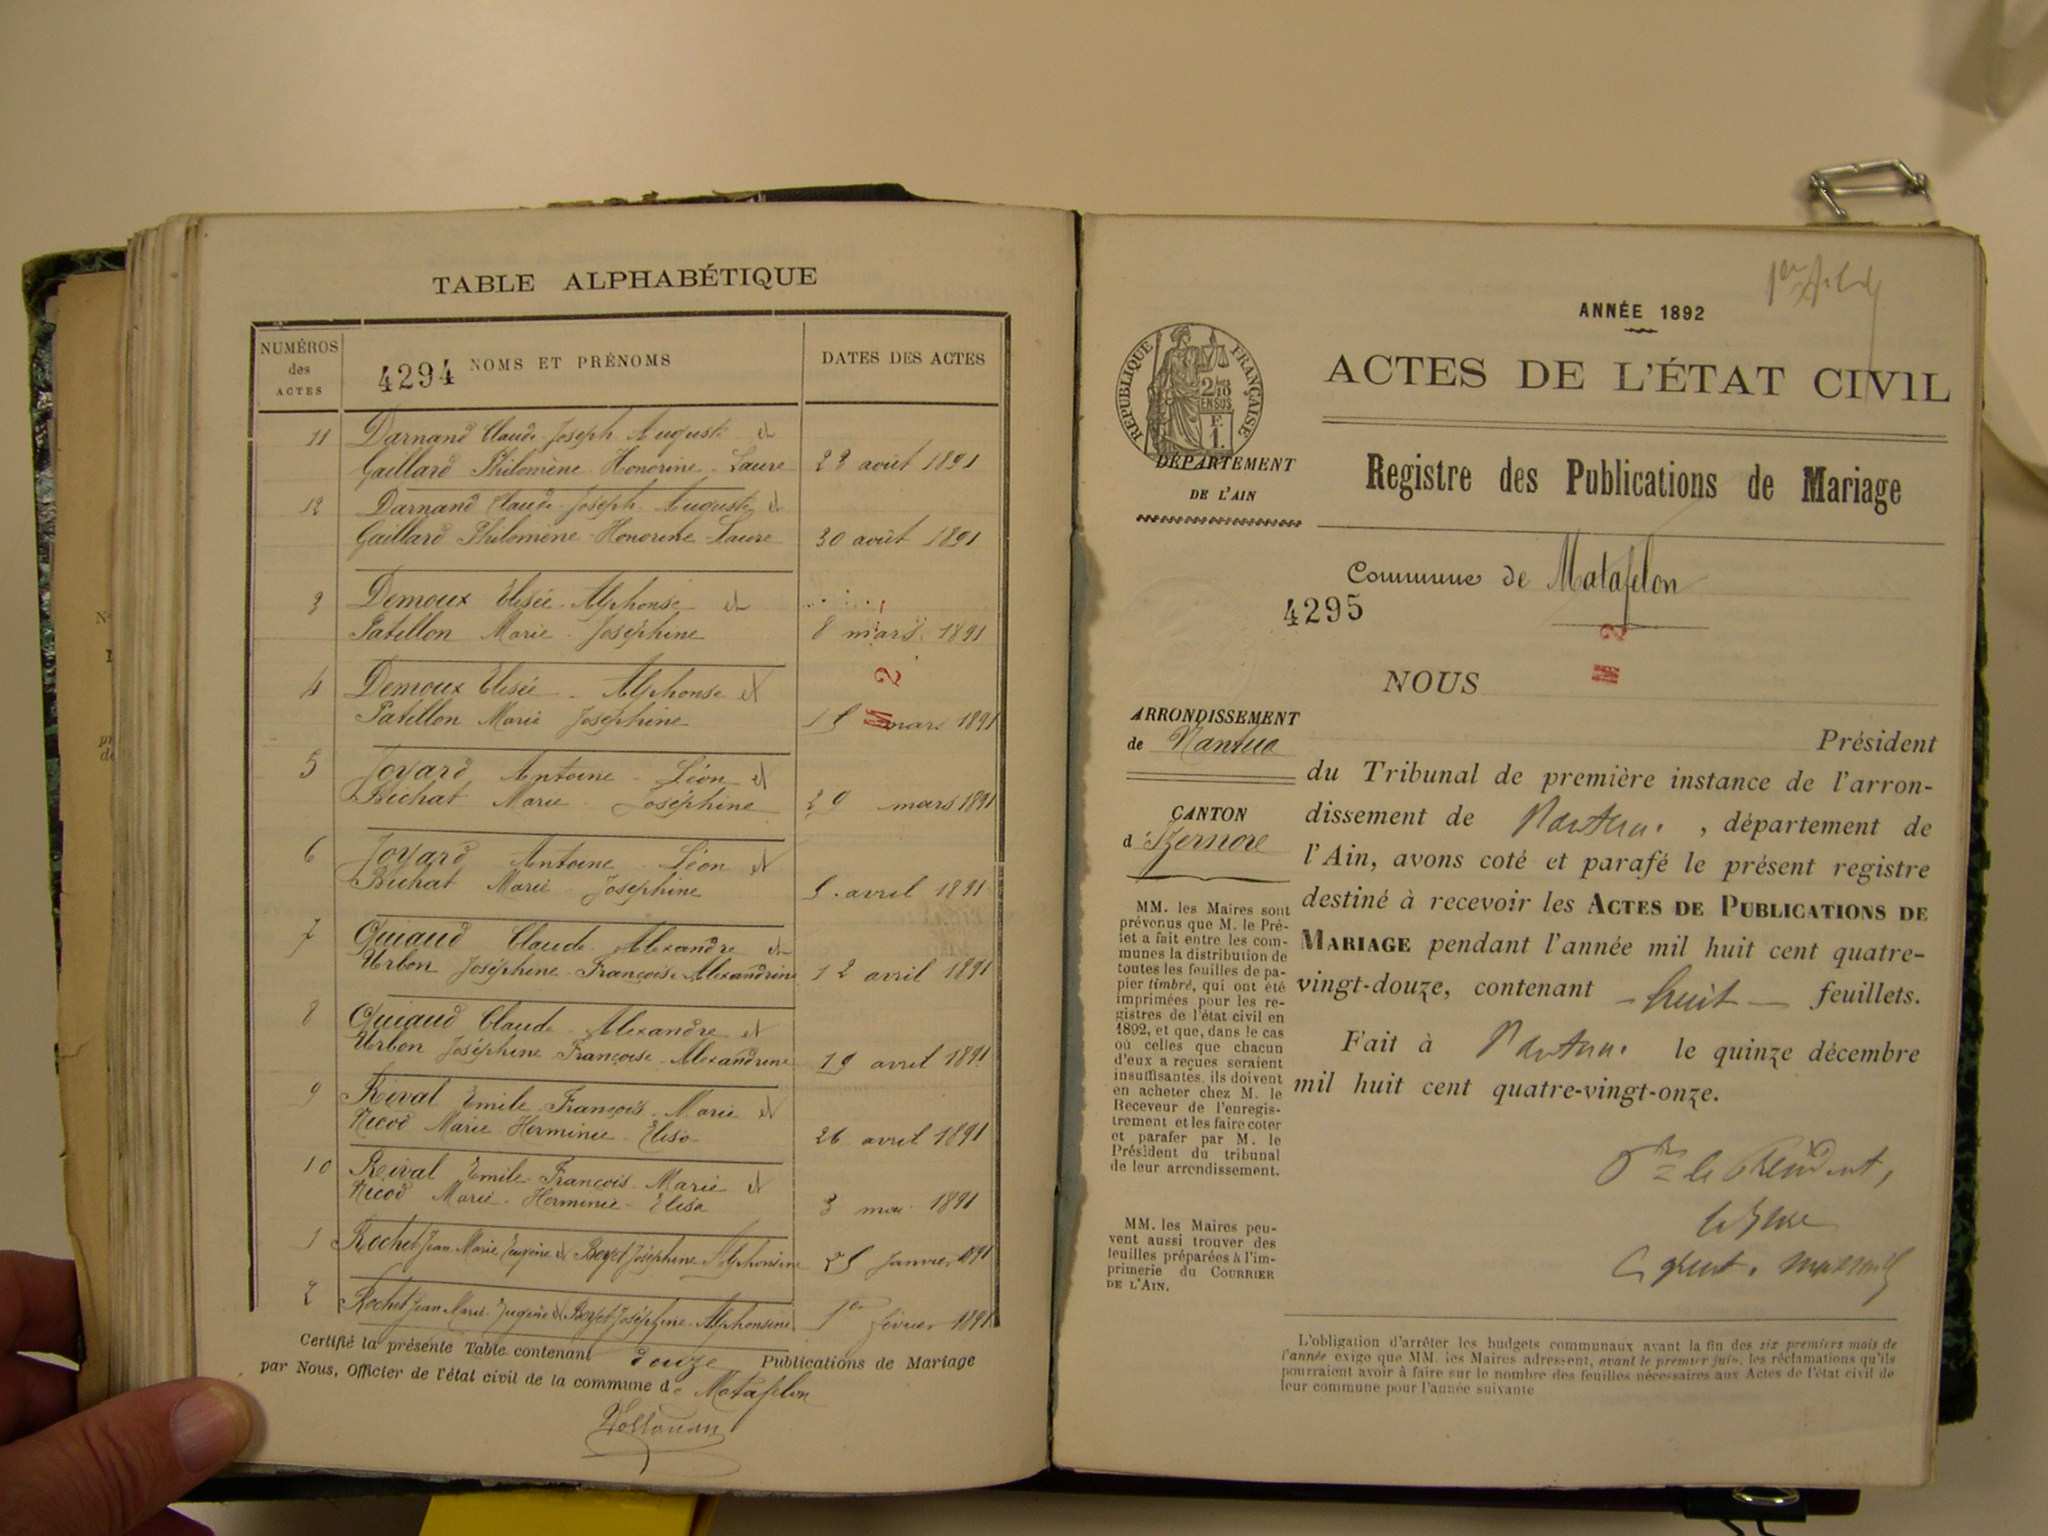 TABLE ALPHABÉTIQUE
NUMÉROS des ACTES
4294 NOMS ET PRÉNOMS
DATES DES ACTES
11 Darnand Claude Joseph Auguste et
Gaillard Philomène Honorine Laure 23 août 1891
12 Darnand Claude Joseph Auguste et
Gaillard Philomène Honorine Laure 30 août 1891
3 Demoux Elisée Alphonse et
Patillon Marie Joséphine 8 mars 1891
4 Demoux Elisée Alphonse et
Patillon Marie Joséphine 15 mars 1891
M 2
5 Joyard Antoine Léon et
Bichat Marie Joséphine 29 mars 1891
6 Joyard Antoine Léon et
Bichat Marie Joséphine 5 avril 1891
7 Quiaud Claude Alexandre et
Urbon Joséphine Françoise Alexandrine 12 avril 1891
8 Quiaud Claude Alexandre et
Urbon Joséphine Françoise Alexandrine 19 avril 1891
9 Reival Emile François Marie et
Nicod Marie Herminie Elisa 26 avril 1891
10 Reival Emile François Marie et
Nicod Marie Herminie Elisa 3 mai 1891
1 Rochet Jean Marie Eugène et Joséphine Alphonsine 25 Janvier 1891
2 Rochet Jean Marie Eugène et Joséphine Alphonsine 1er février 1891
Certifié la présente Table contenant douze Publications de Mariage
par Nous, Officier de l'état civil de la commune de Matafelon
1er
ANNÉE 1892
ACTES DE L'ÉTAT CIVIL
RÉPUBLIQUE FRANÇAISE
DÉPARTEMENT
DE L'AIN
Registre des Publications de Mariage
Commune de Matafelon
4295
M 2
NOUS
ARRONDISSEMENT
de Nantua
CANTON
d'Izernore
Président
du Tribunal de première instance de l'arron-
dissement de Nantua, département de
l'Ain, avons coté et parafé le présent registre
destiné à recevoir les ACTES DE PUBLICATIONS DE
MARIAGE pendant l'année mil huit cent quatre-
vingt-douze, contenant huit feuillets.
Fait à Nantua le quinze décembre
mil huit cent quatre-vingt-onze.
le Président,
MM. les Maires sont
prévenus que M. le Pré-
fet a fait entre les com-
munes la distribution de
toutes les feuilles de pa-
pier timbré, qui ont été
imprimées pour les re-
gistres de l'état civil en
1892, et que, dans le cas
où celles que chacun
d'eux a reçues seraient
insuffisantes, ils doivent
en acheter chez M. le
Receveur de l'enregis-
trement et les faire coter
et parafer par M. le
Président du tribunal
de leur arrondissement.
MM. les Maires peu-
vent aussi trouver des
feuilles préparées à l'im-
primerie du COURRIER
DE L'AIN.
L'obligation d'arrêter les budgets communaux avant la fin des six premiers mois de
l'année exige que MM. les Maires adressent, avant le premier juin, les réclamations qu'ils
pourraient avoir à faire sur le nombre des feuilles nécessaires aux Actes de l'état civil de
leur commune pour l'année suivante